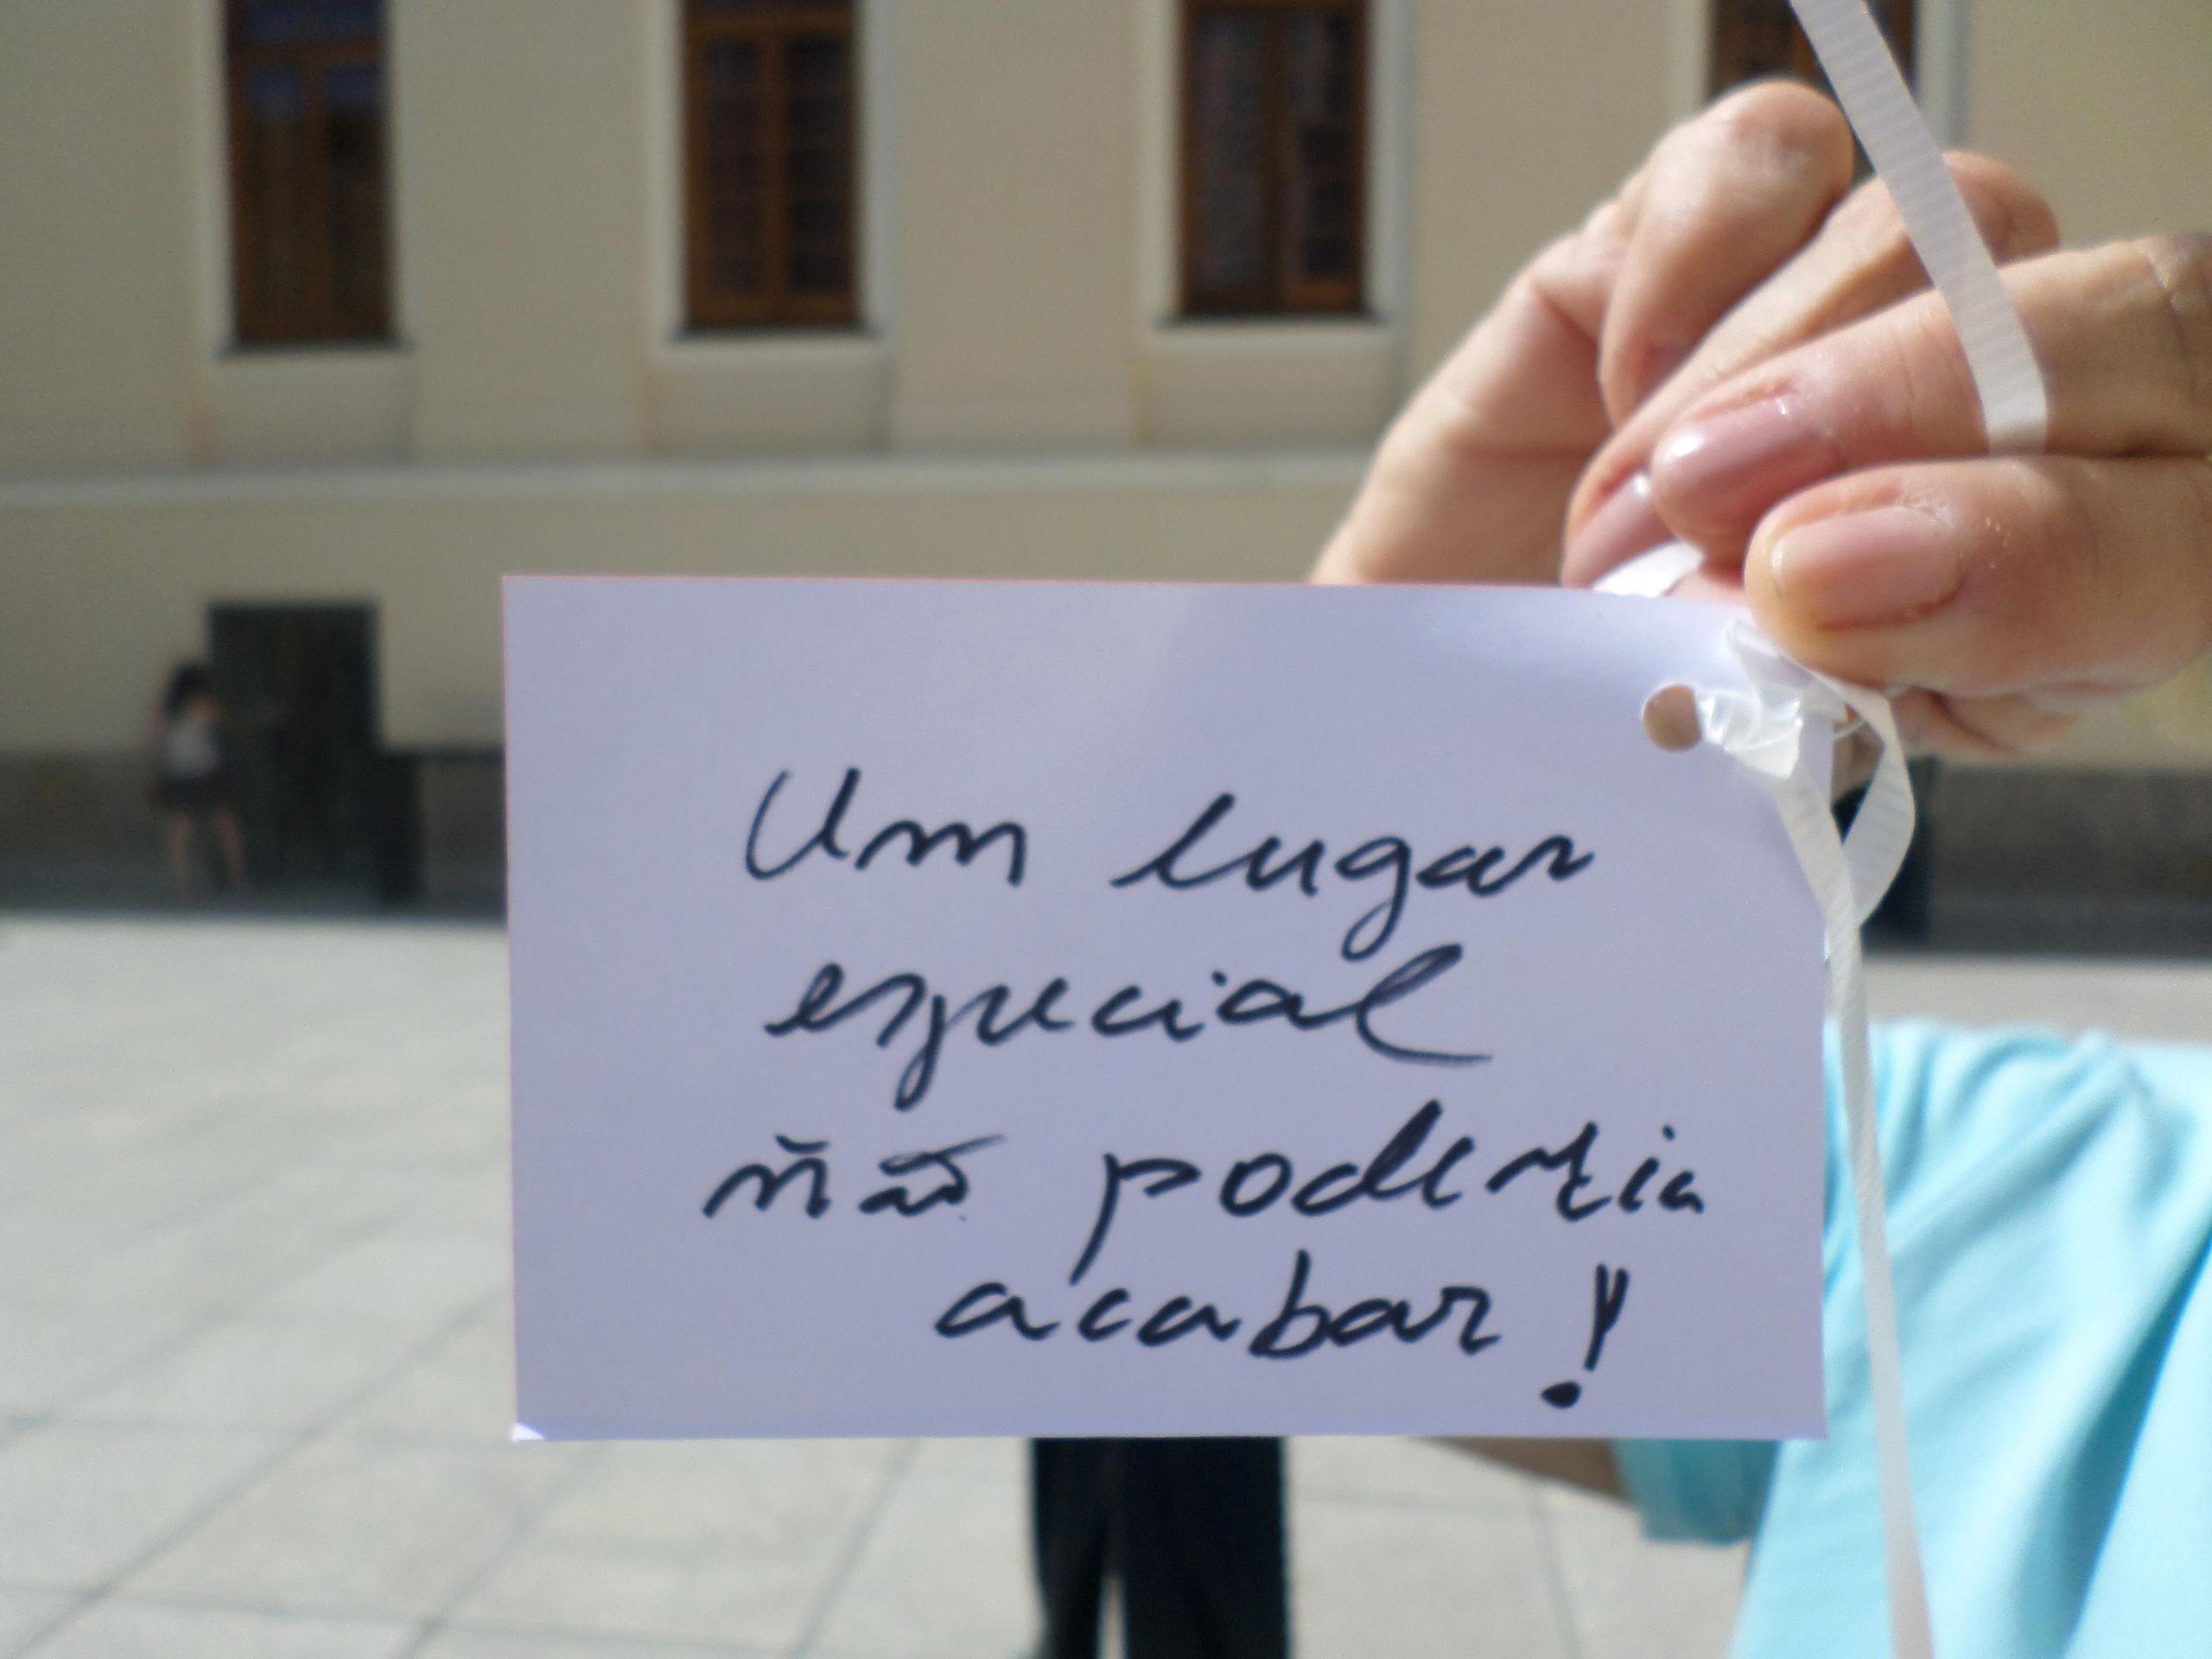 Um lugar
especial
não poderia
acabar!